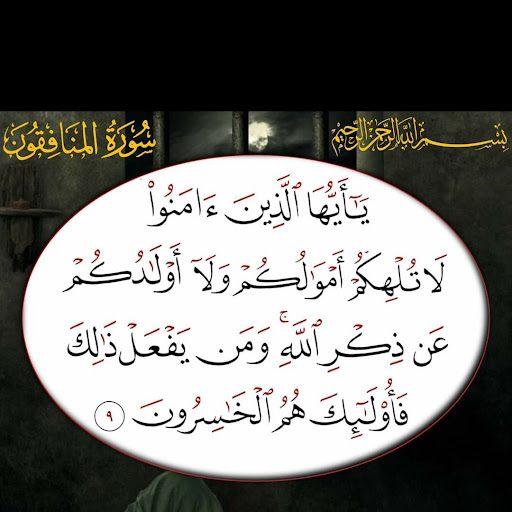 بِسْمِ اللَّهِ الرَّحْمَٰنِ الرَّحِيمِ
سُورَةُ المنَافِقُون
يَٰٓأَيُّهَا ٱلَّذِينَ ءَامَنُوا۟
لَا تُلْهِكُمْ أَمْوَٰلُكُمْ وَلَآ أَوْلَٰدُكُمْ
عَن ذِكْرِ ٱللَّهِ ۚ وَمَن يَفْعَلْ ذَٰلِكَ
فَأُو۟لَٰٓئِكَ هُمُ ٱلْخَٰسِرُونَ ٩